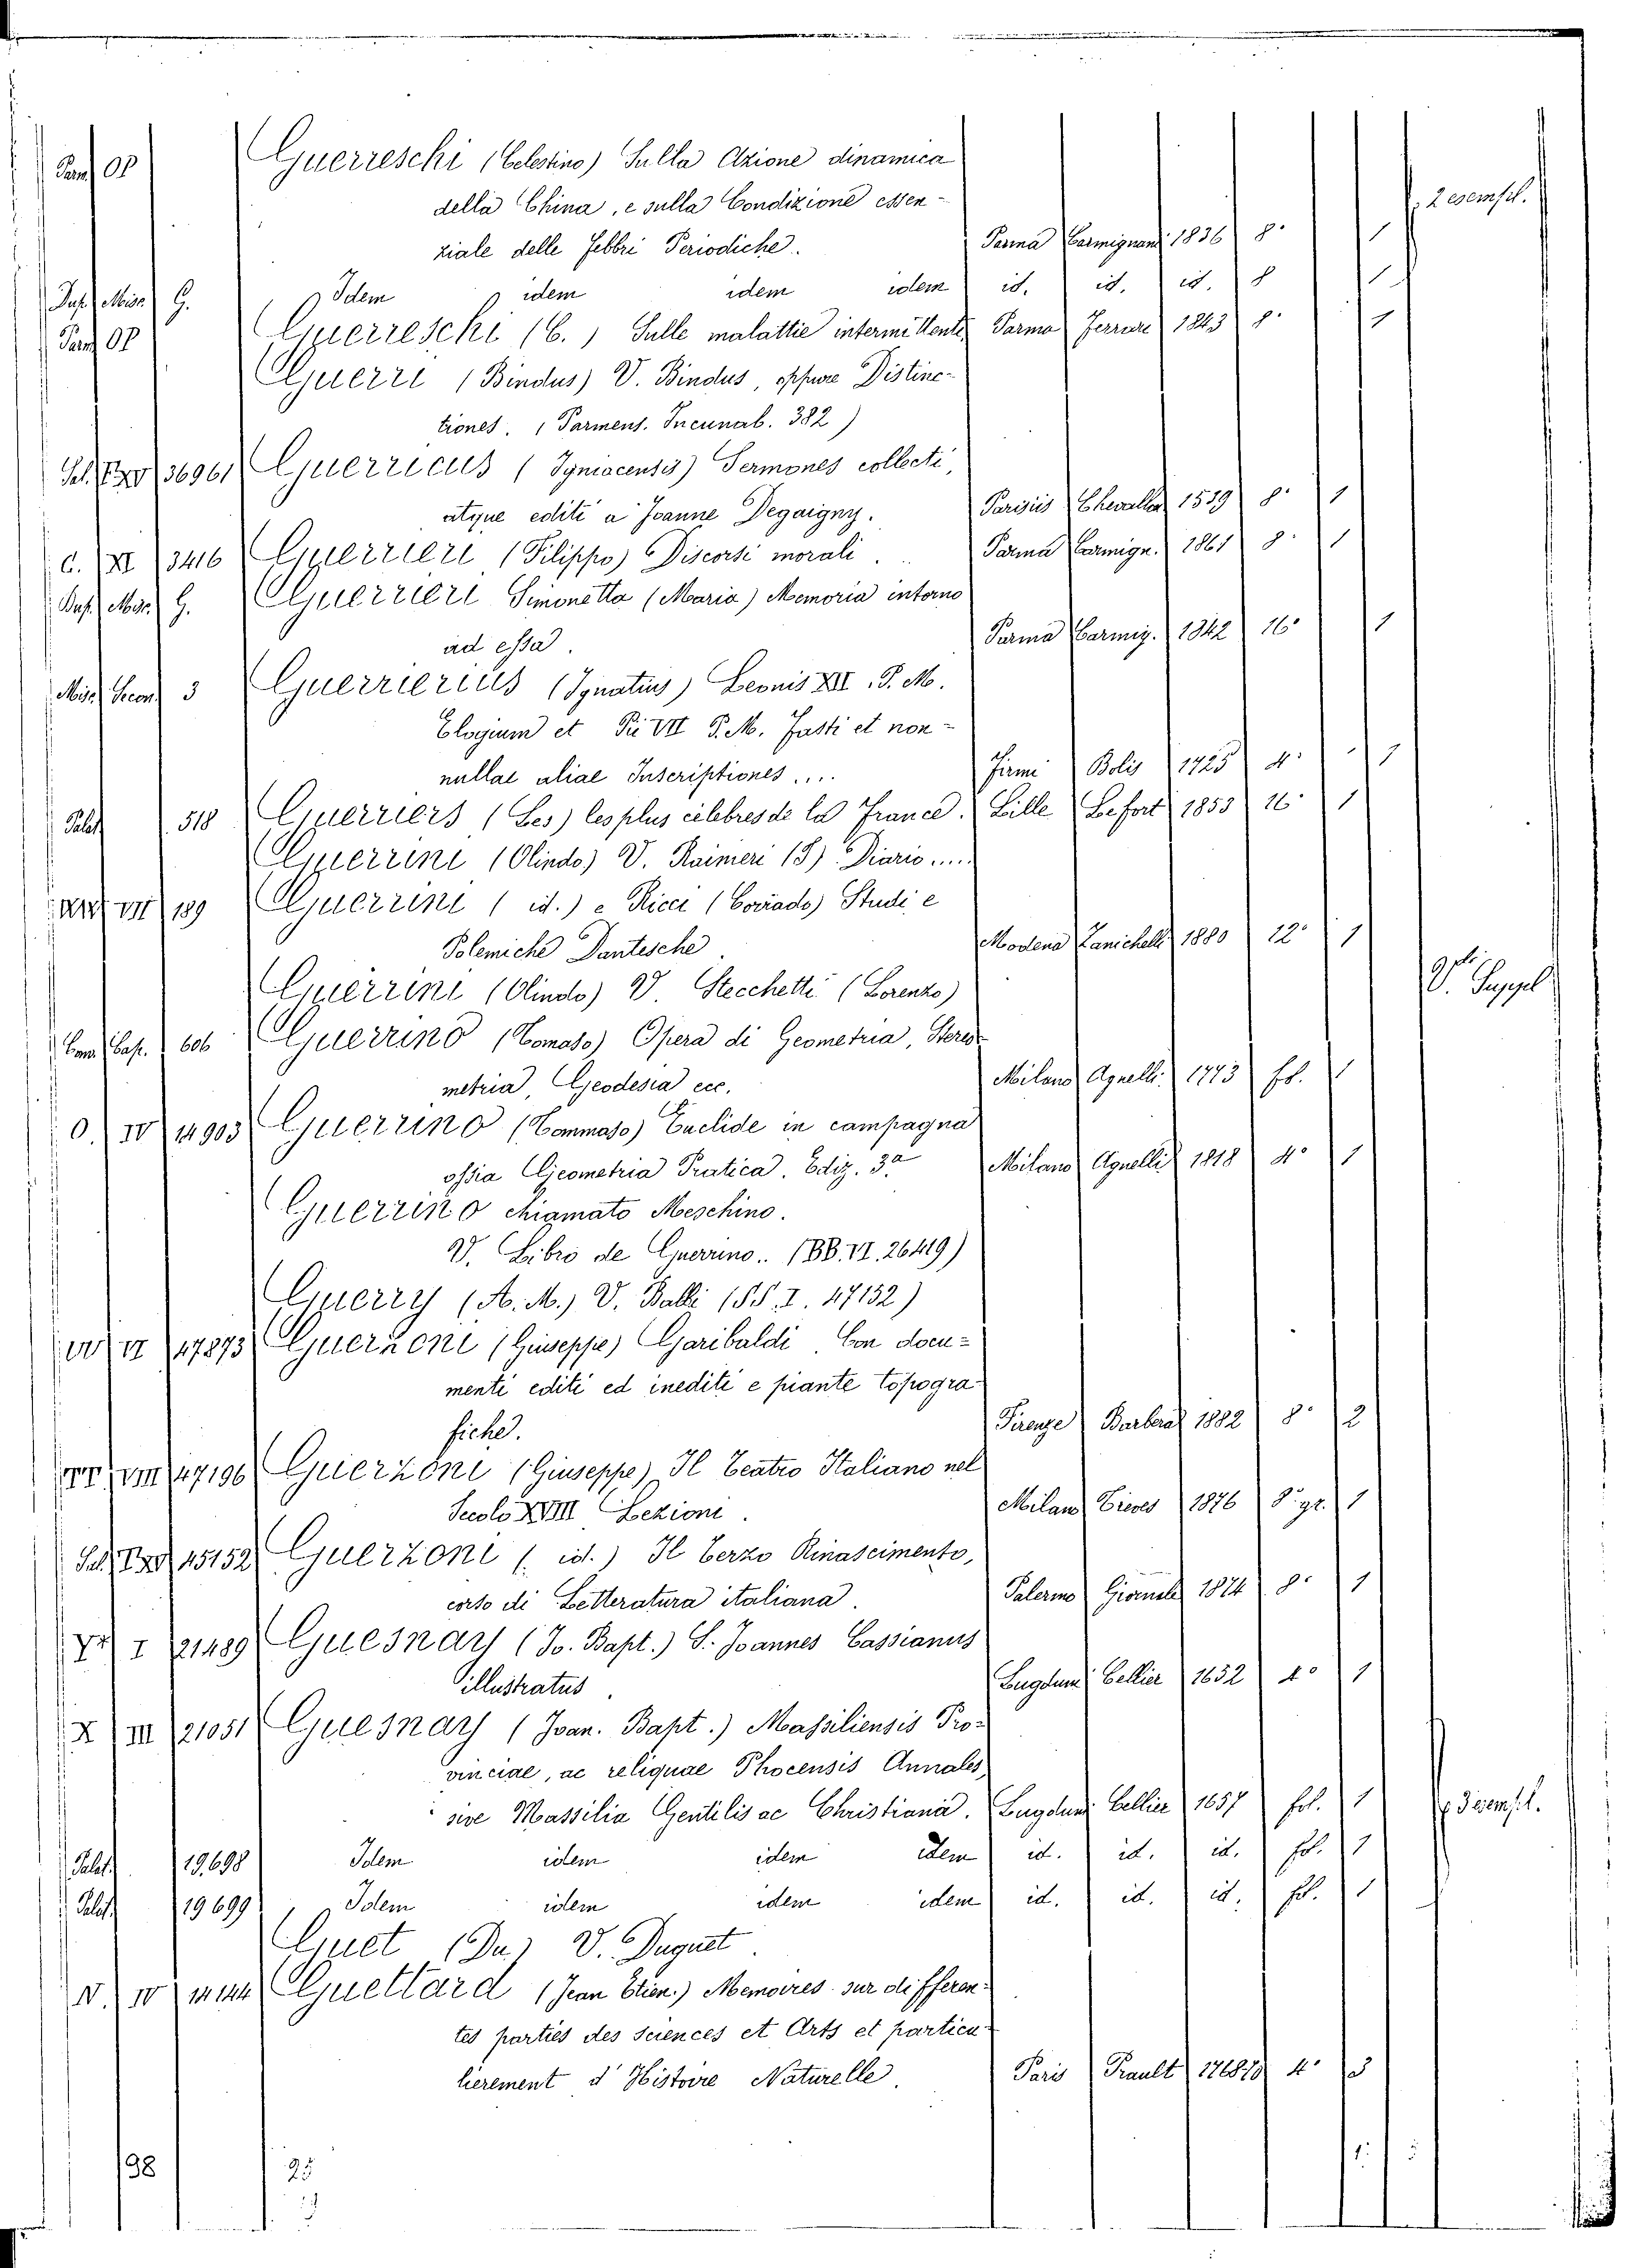 Parm. Op Guerreschi (Celestino) Sulla Azione dinamica
della China, e sulla Condizione essen-
2 esempl.
ziale delle febbri Periodiche. Parma Carmignani 1836 8° 1
Misc. G. Idem idem idem idem id. id. id. 8 1
Parm. Op Guerreschi (C.) Sulle malattie intermittenti Parma Ferrari 1843 8° 1
Guerri (Bindus) V. Bindus, oppure Distinc-
tiones. (Parmens. Incunab. 382)
36961 Guerricus (Igniacensis) Sermones collecti,
atque editi a Joanne Degaigny. Parisiis Chevallon 1539 8° 1
C. XI 3416 Guerrieri (Filippo) Discorsi morali. Parma Carmign. 1861 8° 1
Misc. G. Guerrieri Simonetta (Maria) Memoria intorno
ad essa. Parma Carmig. 1842 16° 1
Misc. 3 Guerrierius (Ignatius) Leonis XII. P. M.
Elogium et Pii VII P. M. Fasti et non-
nullae aliae Inscriptiones .... Bolis 4° 1
Palat. 518 Guerriers (Les) les plus célebres de la France. Lille Lefort 1853 16° 1
Guerrini (Olindo) V. Raineri (S) Diario ....
VII 189 Guerrini (id.) e Ricci (Corrado) Studi e
Polemiche Dantesche. Modena Zanichelli 1880 12° 1
Guerrini (Olindo) V. Stecchetti (Lorenzo)
V. Suppl
606 Guerrino (Tomaso) Opera di Geometria, Stereo-
metria, Geodesia ecc. Milano Agnelli 1773 fol. 1
O. IV 14903 Guerrino (Tommaso) Euclide in campagna
ossia Geometria Pratica. Ediz. 3ª Milano Agnelli 1818 4° 1
Guerrino chiamato Meschino.
V. Libro de Guerrino.. (BB. VI. 26419)
Guerry (A. M.) V. Balbi (SS. I. 47132)
VI 47873 Guerzoni (Giuseppe) Garibaldi. Con docu-
menti editi ed inediti e piante topogra-
fiche. Firenze Barbera 1882 8° 2
VIII 47196 Guerzoni (Giuseppe) Il Teatro Italiano nel
Secolo XVIII Lezioni. Milano Treves 1876 8° gr. 1
45152 Guerzoni (id.) Il terzo Rinascimento,
corso di Letteratura italiana. Palermo Giornale 1874 8° 1
I 21489 Guesnay (Jo. Bapt.) S. Joannes Cassianus
illustratus. Lugduni Cellier 1652 4° 1
X III 21051 Guesnay (Joan. Bapt.) Massiliensis Pro-
vinciae, ac reliquae Phocensis Annales,
sive Massilia Gentilis ac Christiana. Lugduni Cellier 1657 fol. 1 3 esempl.
Palat. 19.698 Idem idem idem idem id. id. id. fol. 1
Palat. 19699 Idem idem idem idem id. id. id. fol. 1
Guet (Du) V. Duguet.
N. IV Guettard (Jean Etien.) Memoires sur differen-
tes parties des sciences et Arts et particu-
lierement d'Histoire Naturelle. Paris Prault 4° 3
98 25